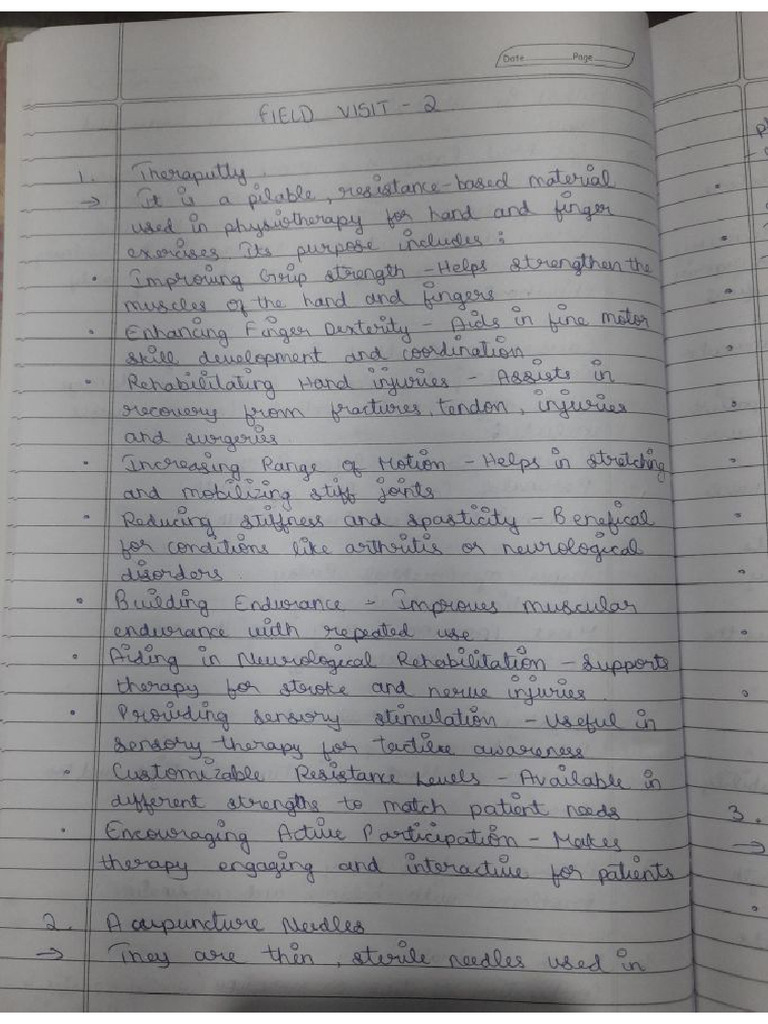 Date Page
FIELD VISIT - 2
1. Theraputty
→ It is a pilable, resistance-based material
used in physiotherapy for hand and finger
exercises. Its purpose includes :
• Improving Grip strength - Helps strengthen the
muscles of the hand and fingers
• Enhancing Finger Dexterity - Aids in fine motor
skill development and coordination
• Rehabilitating Hand injuries - Assists in
recovery from fractures, tendon, injuries
and surgeries
• Increasing Range of Motion - Helps in stretching
and mobilizing stiff joints
• Reducing stiffness and spasticity - Benefical
for conditions like arthritis or neurological
disorders
• Building Endurance - Improves muscular
endurance with repeated use
• Aiding in Neurological Rehabilitation - Supports
therapy for stroke and nerve injuries
• Providing sensory stimulation - Useful in
sensory therapy for tactile awareness
• Customizable Resistance Levels - Available in
different strengths to match patient needs
• Encouraging Active Participation - Makes
therapy engaging and interactive for patients
2. Acupuncture Needles
→ They are thin, sterile needles used in
3.
→